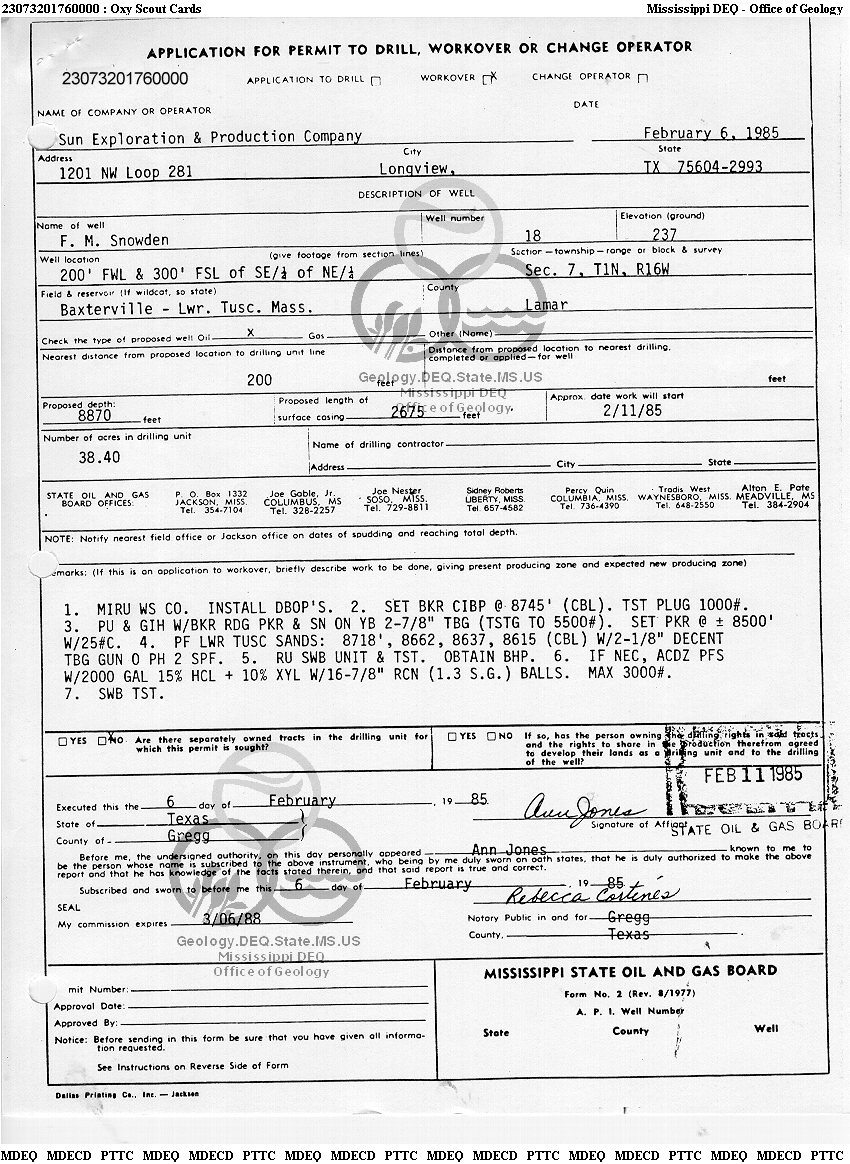 23073201760000 : Oxy Scout Cards Mississippi DEQ - Office of Geology
APPLICATION FOR PERMIT TO DRILL, WORKOVER OR CHANGE OPERATOR
23073201760000 APPLICATION TO DRILL □ WORKOVER □X CHANGE OPERATOR □
NAME OF COMPANY OR OPERATOR DATE
Sun Exploration & Production Company February 6, 1985
Address City State
1201 NW Loop 281 Longview, TX 75604-2993
DESCRIPTION OF WELL
Name of well Well number Elevation (ground)
F. M. Snowden 18 237
Well location (give footage from section lines) Section—township—range or block & survey
200' FWL & 300' FSL of SE/¼ of NE/¼ Sec. 7, T1N, R16W
Field & reservoir (If wildcat, so state) County
Baxterville - Lwr. Tusc. Mass. Lamar
Check the type of proposed well Oil X Gas Other (Name)
Nearest distance from proposed location to drilling unit line Distance from proposed location to nearest drilling,
completed or applied—for well
200 feet feet
Geology.DEQ.State.MS.US
Mississippi DEQ
Office of Geology
Proposed depth: Proposed length of Approx. date work will start
8870 feet surface casing 2675 feet 2/11/85
Number of acres in drilling unit Name of drilling contractor
38.40
Address City State
STATE OIL AND GAS P. O. Box 1332 Joe Gable, Jr. Joe Nester Sidney Roberts Percy Quin Tradis West Alton E. Pate
BOARD OFFICES: JACKSON, MISS. COLUMBUS, MS SOSO, MISS. LIBERTY, MISS. COLUMBIA, MISS. WAYNESBORO, MISS. MEADVILLE, MS
Tel. 354-7104 Tel. 328-2257 Tel. 729-8811 Tel. 657-4582 Tel. 736-4390 Tel. 648-2550 Tel. 384-2904
NOTE: Notify nearest field office or Jackson office on dates of spudding and reaching total depth.
emarks: (If this is an application to workover, briefly describe work to be done, giving present producing zone and expected new producing zone)
1. MIRU WS CO. INSTALL DBOP'S. 2. SET BKR CIBP @ 8745' (CBL). TST PLUG 1000#.
3. PU & GIH W/BKR RDG PKR & SN ON YB 2-7/8" TBG (TSTG TO 5500#). SET PKR @ ± 8500'
W/25#C. 4. PF LWR TUSC SANDS: 8718', 8662, 8637, 8615 (CBL) W/2-1/8" DECENT
TBG GUN O PH 2 SPF. 5. RU SWB UNIT & TST. OBTAIN BHP. 6. IF NEC, ACDZ PFS
W/2000 GAL 15% HCL + 10% XYL W/16-7/8" RCN (1.3 S.G.) BALLS. MAX 3000#.
7. SWB TST.
□ YES □X NO Are there separately owned tracts in the drilling unit for
which this permit is sought?
□ YES □ NO If so, has the person owning the drilling rights in said tracts
and the rights to share in the production therefrom agreed
to develop their lands as a drilling unit and to the drilling
of the well?
FEB 11 1985
STATE OIL & GAS BOARD
Executed this the 6 day of February , 19 85. Ann Jones
State of Texas Signature of Affiant
County of Gregg
Before me, the undersigned authority, on this day personally appeared Ann Jones known to me to
be the person whose name is subscribed to the above instrument, who being by me duly sworn on oath states, that he is duly authorized to make the above
report and that he has knowledge of the facts stated therein, and that said report is true and correct.
Subscribed and sworn to before me this 6 day of February , 19 85.
Rebecca Cortines
SEAL Notary Public in and for Gregg
My commission expires 3/06/88 County, Texas
Geology.DEQ.State.MS.US
Mississippi DEQ
Office of Geology
mit Number:
Approval Date:
Approved By:
Notice: Before sending in this form be sure that you have given all informa-
tion requested.
See Instructions on Reverse Side of Form
MISSISSIPPI STATE OIL AND GAS BOARD
Form No. 2 (Rev. 8/1977)
A. P. I. Well Number
State County Well
Dallas Printing Co., Inc. — Jackson
MDEQ MDECD PTTC MDEQ MDECD PTTC MDEQ MDECD PTTC MDEQ MDECD PTTC MDEQ MDECD PTTC MDEQ MDECD PTTC